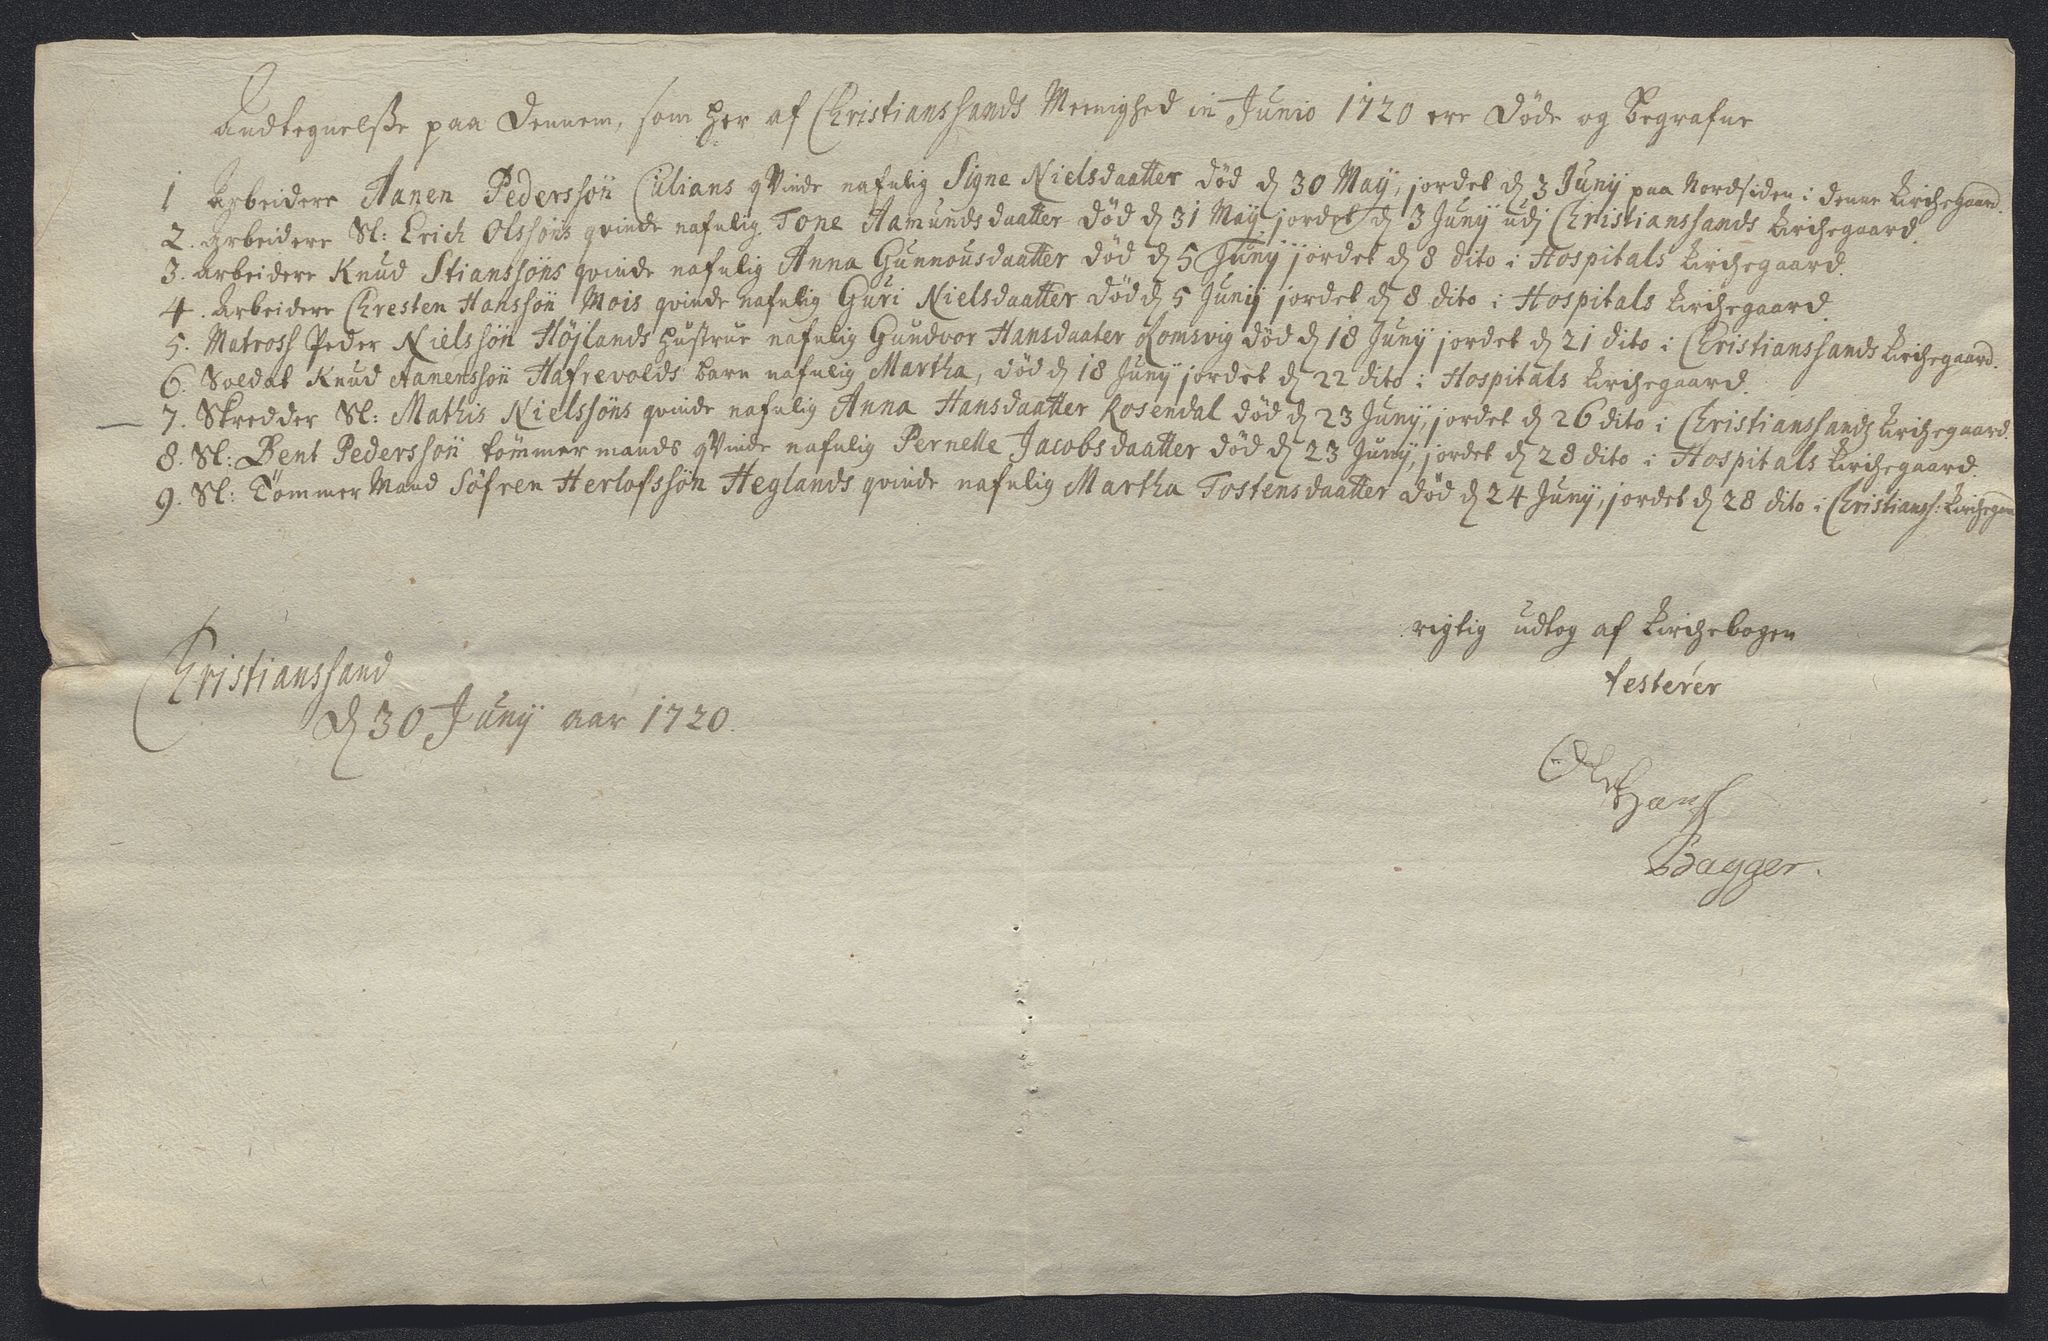 Andtegnelsße paa Dennem, som her af Christianssands Meenighed in Junio 1720 ere Døde og Begrafne
1 Arbeidere Aanen Pederssøn Culians qvinde nafnlig Signe Nielsdaatter død d. 30 Maij, jordet d. 3 Junij paa Nordsiden i denne Kirchegaard.
2. Arbeidere Sl: Erich Olssøns qvinde nafnlig Tone Aamundsdaatter død d. 31 Maij jordet d. 3 Junij udj Christianssands Kirchegaard.
3. Arbeidere Knud Stianssøns qvinde nafnlig Anna Gunnousdaatter død d. 5 Junij jordet d. 8 dito i Hospitals Kirchegaard.
4. Arbeidere Chresten Hanssøn Mois qvinde nafnlig Guri Nielsdaatter død d. 5 Junij jordet d. 8 dito i Hospitals Kirchegaard.
5. Matross Peder Nielssøn Højlands hustrue nafnlig Gundvor Hansdaater Romsvig død d. 18 Junij jordet d. 21 dito i Christianssands Kirchegaard.
6. Soldat Knud Aanenssøn Hafrevolds barn nafnlig Martha, død d. 18 Junij jordet d. 22 dito i Hospitals Kirchegaard.
7. Skredder Sl: Mathis Nielssøns qvinde nafnlig Anna Hansdaatter Rosendal død d. 23 Junij, jordet d. 26 dito i Christianssands Kirchegaard.
8. Sl: Bent Pederssøn tømmermands qvinde nafnlig Pernelle Jacobsdaatter død d. 23 Junij, jordet d. 28 dito i Hospitals Kirchegaard.
9. Sl: Tømmer Mand Søfren Herlofssøn Heglands qvinde nafnlig Martha Tostensdaatter død d. 24 Junij, jordet d. 28 dito i Christianss: Kirchegaard
rigtig udtog af Kirchebogen
testerer
Christianssand
d. 30 Junij aar 1720.
Hanss
Bagger.